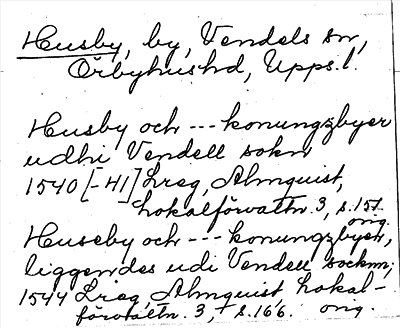 Husby, by, Vendels sn,
Örbyhushd, Upps.l.
Husby och --- konungzbyer
udhi Vendell sokn
1540 [-41] Lreg, Almquist,
Lokalförvaltn. 3, s. 157.
orig.
Huseby och --- konungzbyer,
liggendes udi Vendell socknn,
1544 Lreg, Almquist, Lokal-
förvaltn. 3, s. 166. orig.